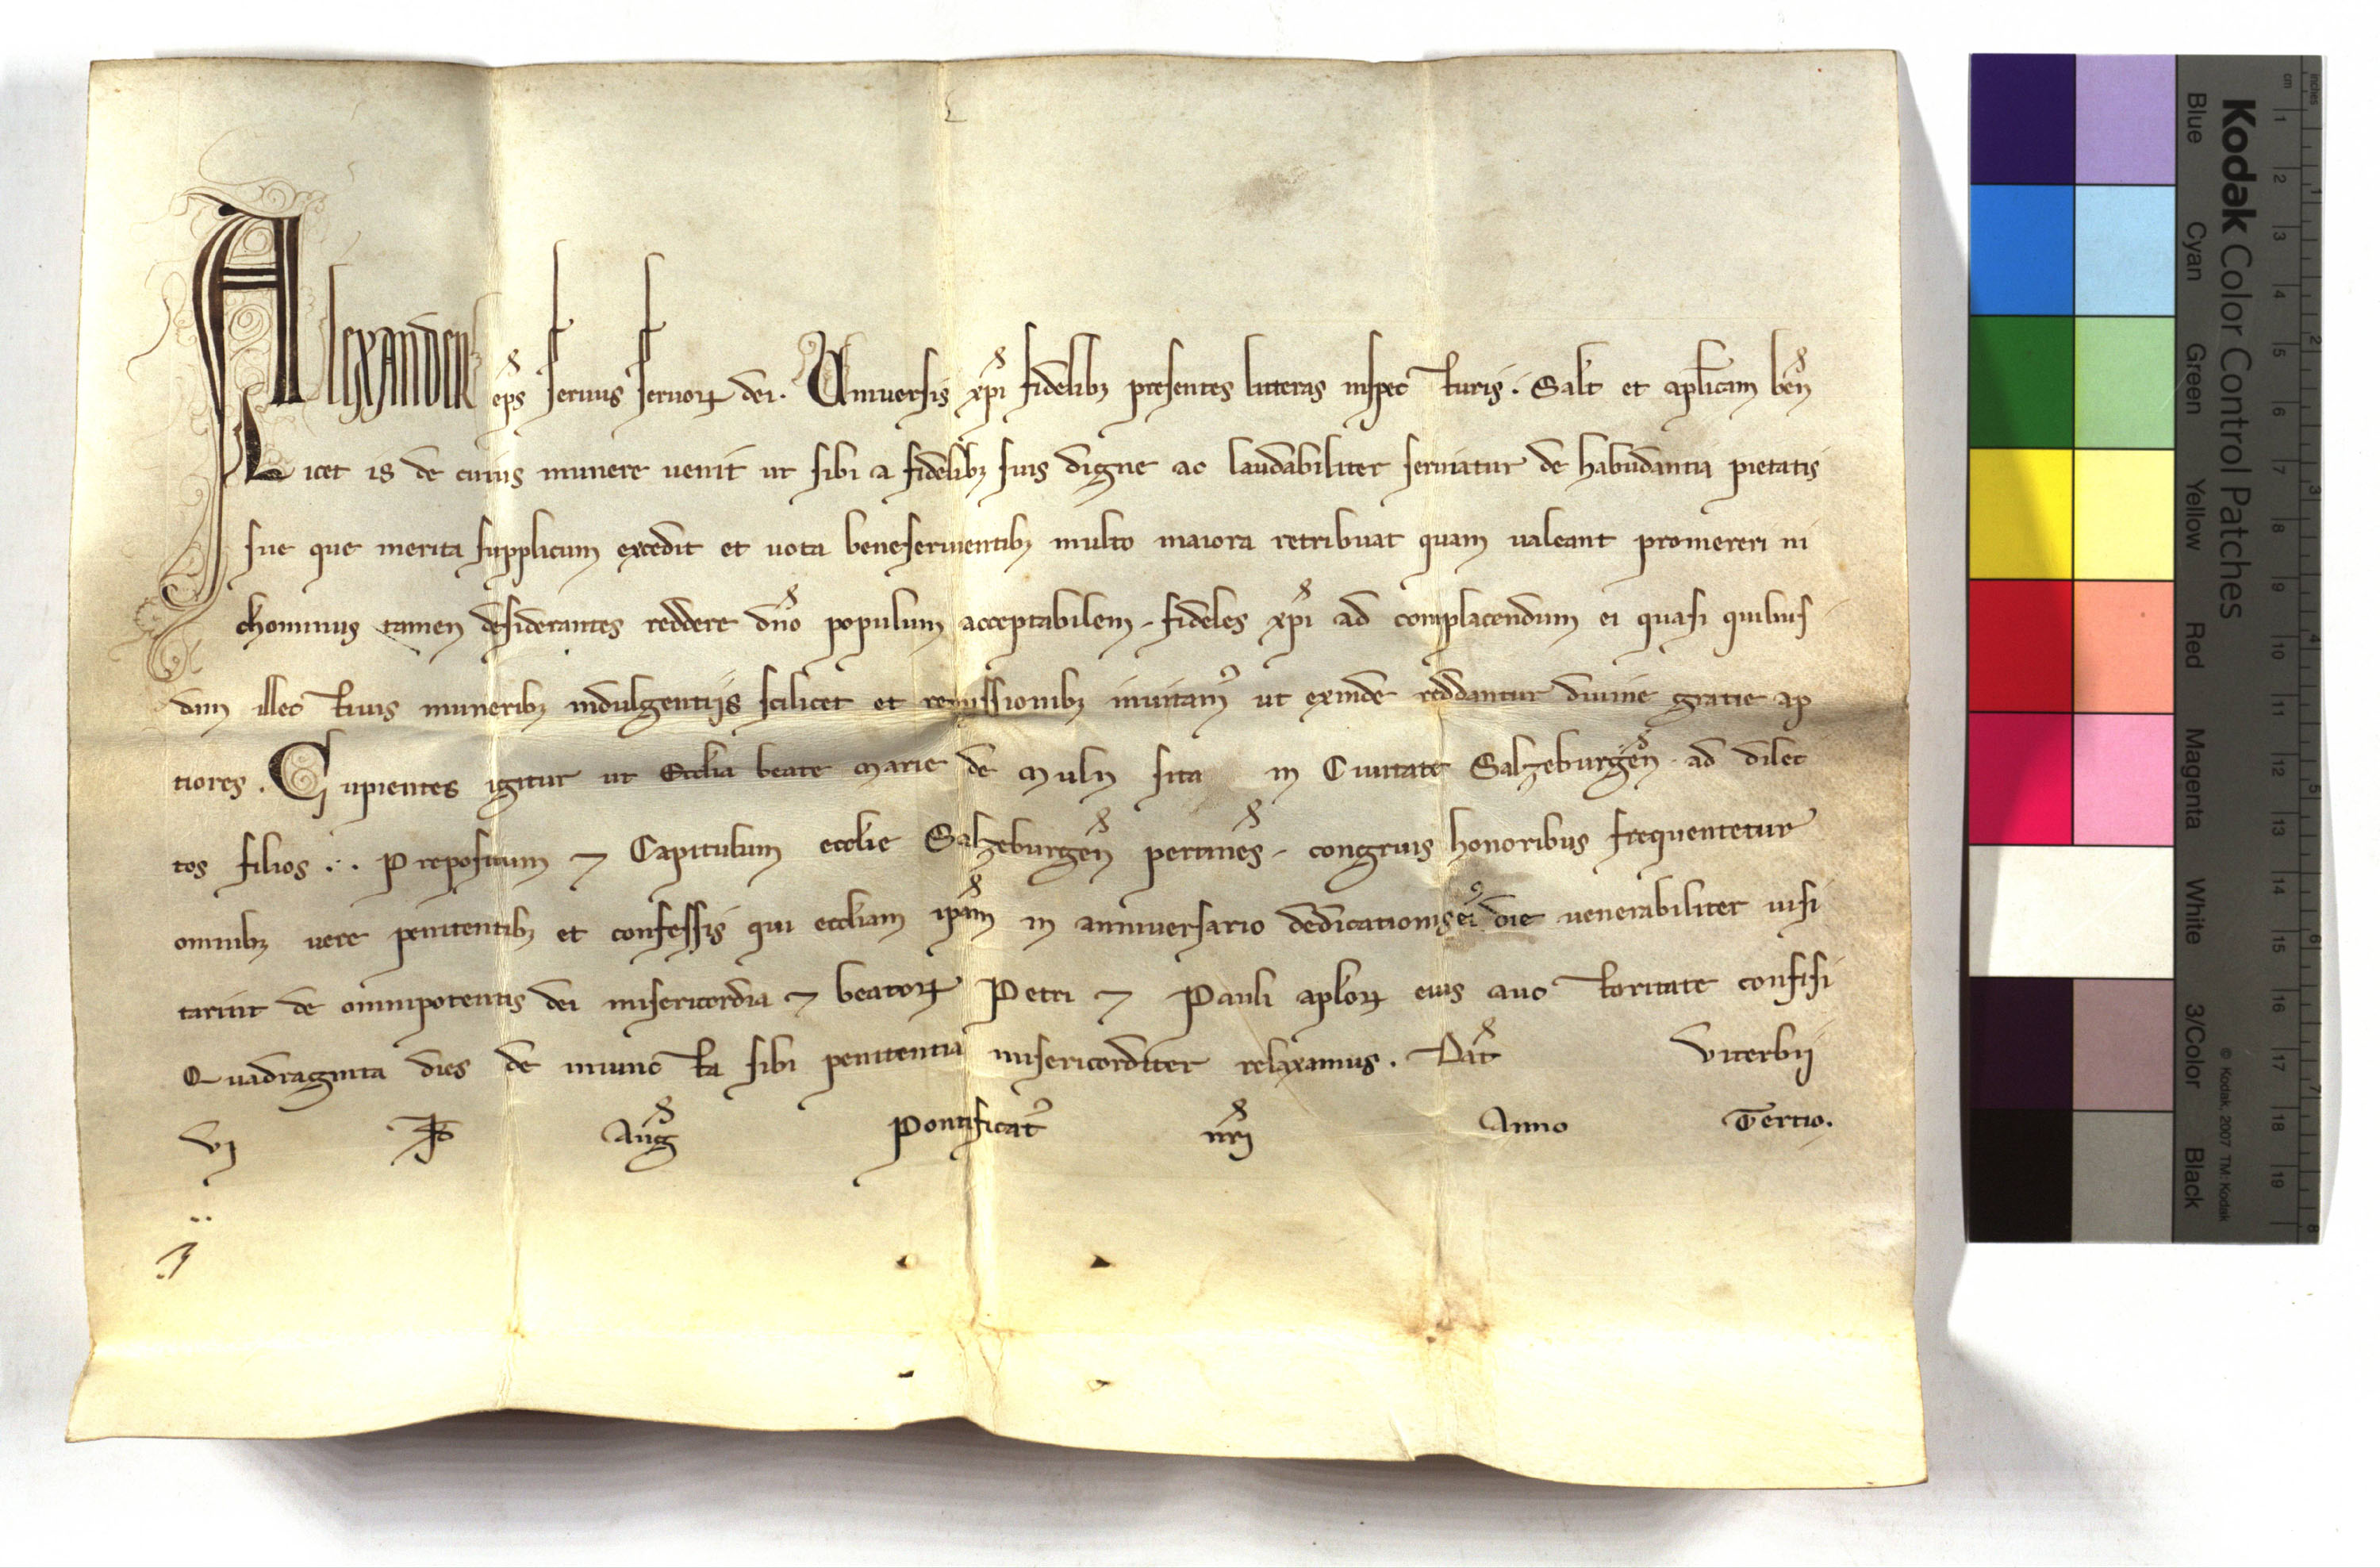 Alexander ep̄s seruus seruoꝝ dei. Uniuersis xp̄i fidelibꝫ presentes litteras inspecturis. Salt et aplicam ben̄
Licet is de cuius munere uenit ut sibi a fidelibꝫ suis digne ac laudabiliter seruiatur de habundantia pietatis
sue que merita supplicum excedit et uota beneseruientibꝫ multo maiora retribuat quam ualeant promereri ni
chominus tamen desiderantes reddere dn̄o populum acceptabilem. fideles xp̄i ad complacendum ei quasi quibus
dam illectiuis muneribꝫ indulgentijs scilicet et remissionibꝫ inuitamꝰ ut exinde reddantur diuine gratie ap
tiores. Cupientes igitur ut Ecclia beate Marie de Muln sita in Ciuitate Salzeburgen̄. ad dilec
tos filios .. Prepositum ⁊ Capitulum ecclie Salzeburgen̄ pertines̄. congruis honoribus frequentetur
omnibꝫ uere penitentibꝫ et confessis qui eccliam ip̄am in anniuersario dedicationis eiꝰ die uenerabiliter uisi
tarint de omnipotentis dei misericordia ⁊ beatoꝝ Petri ⁊ Pauli aploꝝ eius auctoritate confisi
Quadraginta dies de iniuncta sibi penitentia misericorditer relaxamus. Dat̄ Viterbij
vj kl Auḡ Pontificatꝰ nr̄j Anno Tertio.
Kodak Color Control Patches
Blue Cyan Green Yellow Red Magenta White 3/Color Black
© Kodak, 2007 TM: Kodak
inches 1 2 3 4 5 6 7 8
cm 1 2 3 4 5 6 7 8 9 10 11 12 13 14 15 16 17 18 19